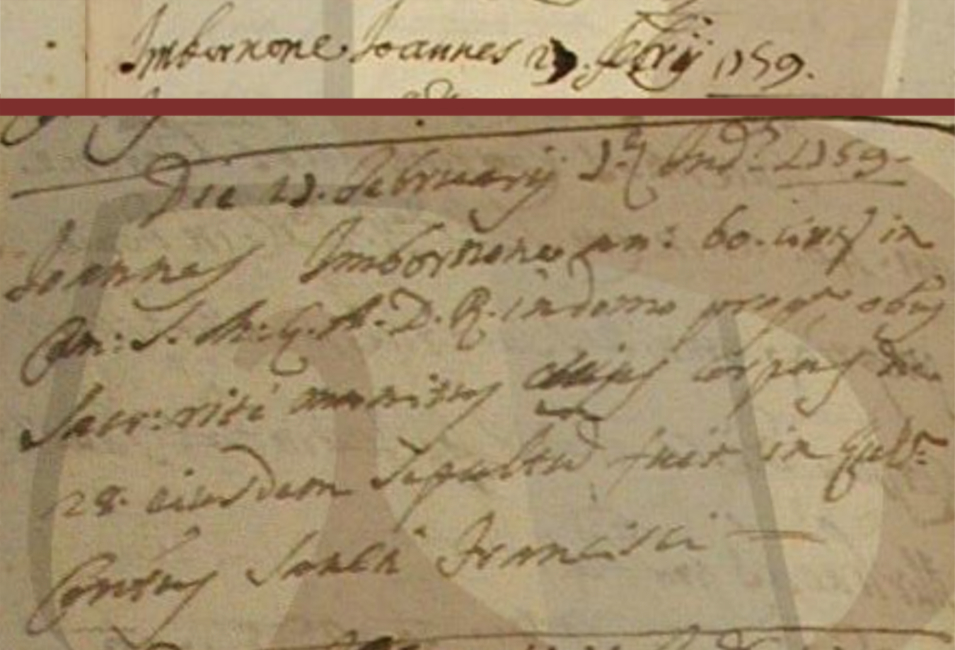 Imbornone Joannes 27. Febrij 1759.
Die 27. Februarij Ind. 1759.
Joannes Imbornone an: 60. in
Com: S. M. E. R. D. R. in domo obijt
Sacr: riti munitus cujus corpus die
28. ejusdem sepultu fuit in
Contus Sancti Francisci